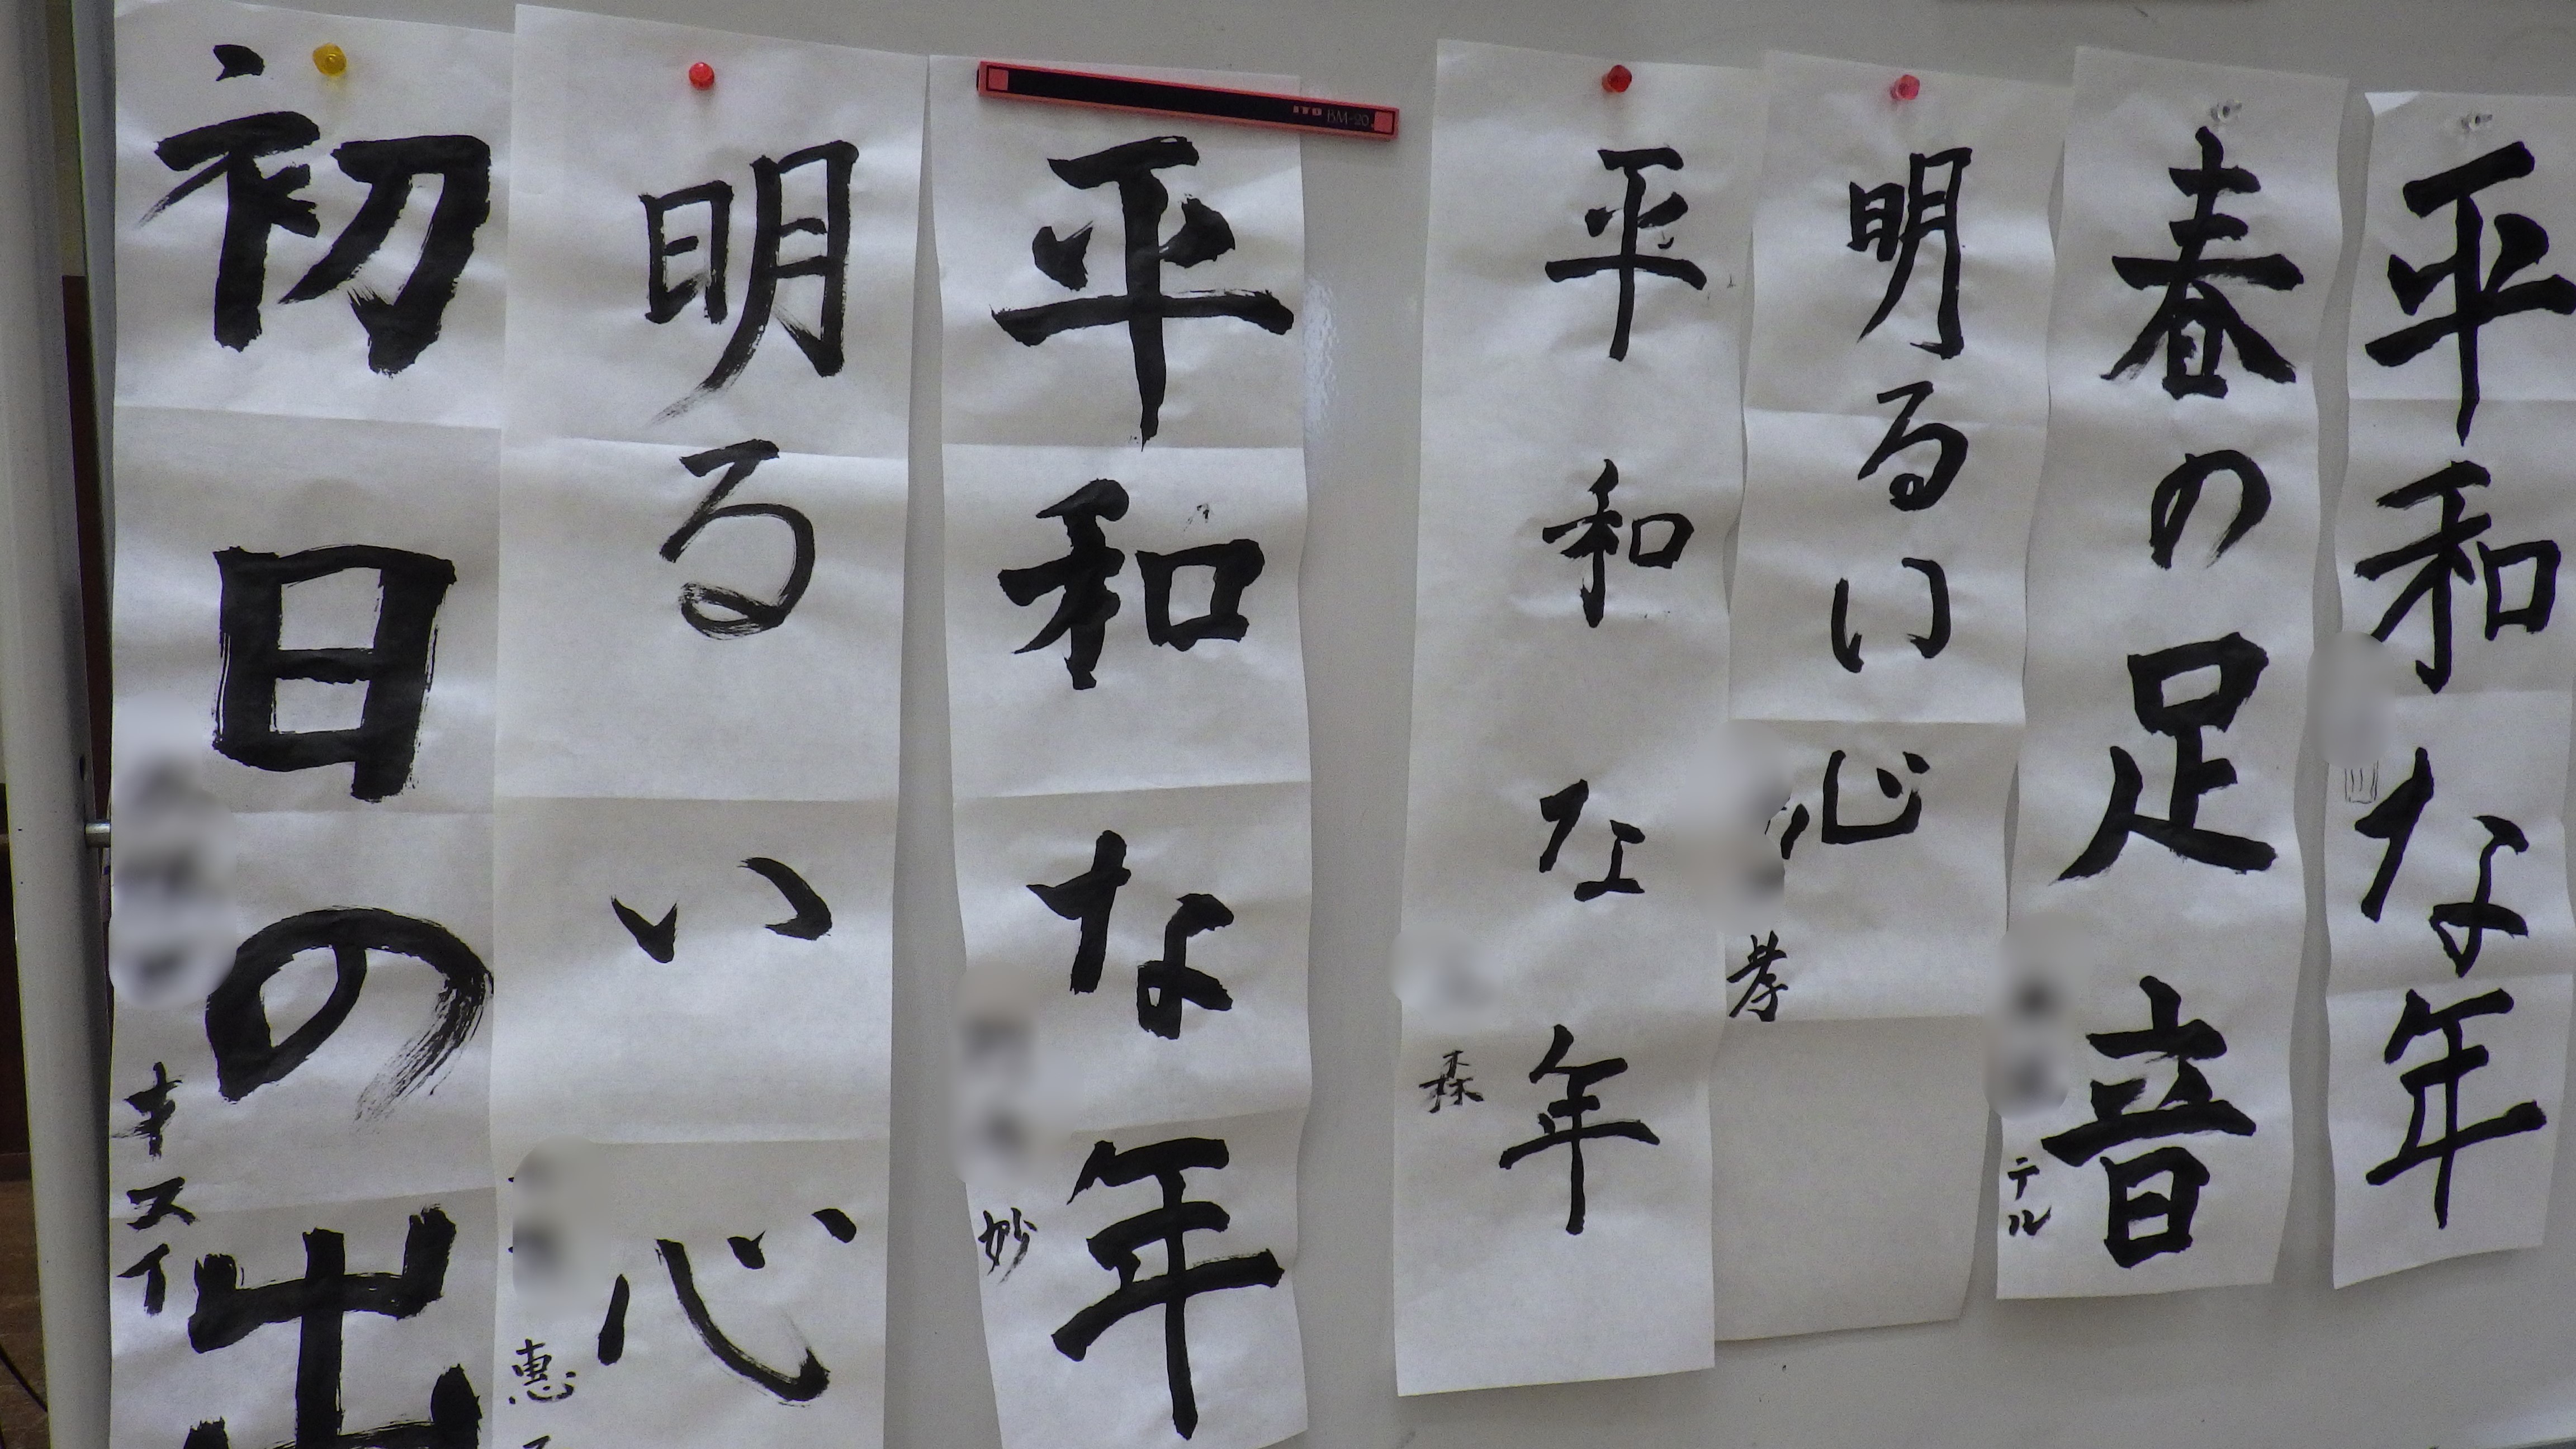 平和な年
春の足音
テル
明るい心
孝
平和な年
森
ITO BM-20
平和な年
妙
明るい心
恵
初日の出
キスイ